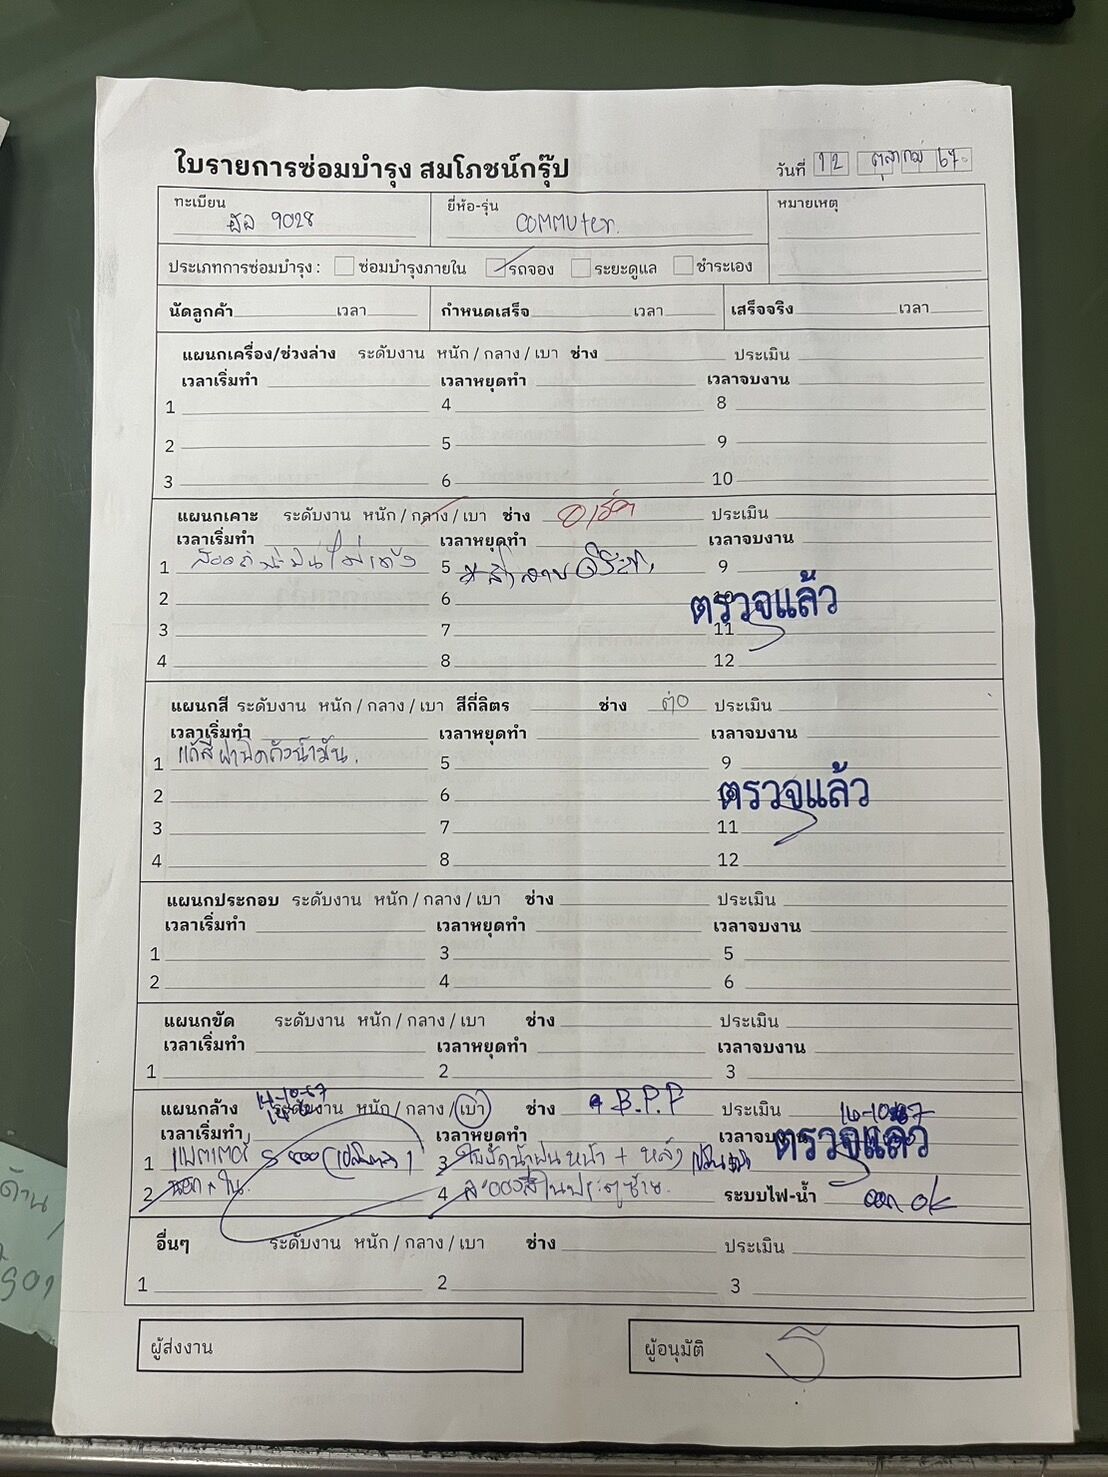 ใบรายการซ่อมบำรุง สมโภชน์กรุ๊ป
วันที่ 12 ตุลาคม 67
ทะเบียน 9028
ยี่ห้อ-รุ่น commuter.
หมายเหตุ
ประเภทการซ่อมบำรุง : ซ่อมบำรุงภายใน รถจอง ระยะดูแล ชำระเอง
นัดลูกค้า เวลา กำหนดเสร็จ เวลา เสร็จจริง เวลา
แผนกเครื่อง/ช่วงล่าง ระดับงาน หนัก / กลาง / เบา ช่าง ประเมิน
เวลาเริ่มทำ เวลาหยุดทำ เวลาจบงาน
1 4 8
2 5 9
3 6 10
แผนกเคาะ ระดับงาน หนัก / กลาง / เบา ช่าง ประเมิน
เวลาเริ่มทำ เวลาหยุดทำ เวลาจบงาน
1 5 9
2 6 10
ตรวจแล้ว
3 7 11
4 8 12
แผนกสี ระดับงาน หนัก / กลาง / เบา สีกี่ลิตร ช่าง ต่อ ประเมิน
เวลาเริ่มทำ เวลาหยุดทำ เวลาจบงาน
1 แก้สีฝาปิดถังน้ำมัน. 5 9
2 6 10
ตรวจแล้ว
3 7 11
4 8 12
แผนกประกอบ ระดับงาน หนัก / กลาง / เบา ช่าง ประเมิน
เวลาเริ่มทำ เวลาหยุดทำ เวลาจบงาน
1 3 5
2 4 6
แผนกขัด ระดับงาน หนัก / กลาง / เบา ช่าง ประเมิน
เวลาเริ่มทำ เวลาหยุดทำ เวลาจบงาน
1 2 3
แผนกล้าง 14-10-67 ระดับงาน หนัก / กลาง / เบา ช่าง B.P.P ประเมิน 14-10-67
เวลาเริ่มทำ เวลาหยุดทำ เวลาจบงาน
ตรวจแล้ว
1 แบตเตอรี่ 3 ใบปัดน้ำฝน หน้า + หลัง
2 นอก + ใน 4 ละอองสีในประตูซ้าย ระบบไฟ-น้ำ ok
อื่นๆ ระดับงาน หนัก / กลาง / เบา ช่าง ประเมิน
1 2 3
ผู้ส่งงาน ผู้อนุมัติ